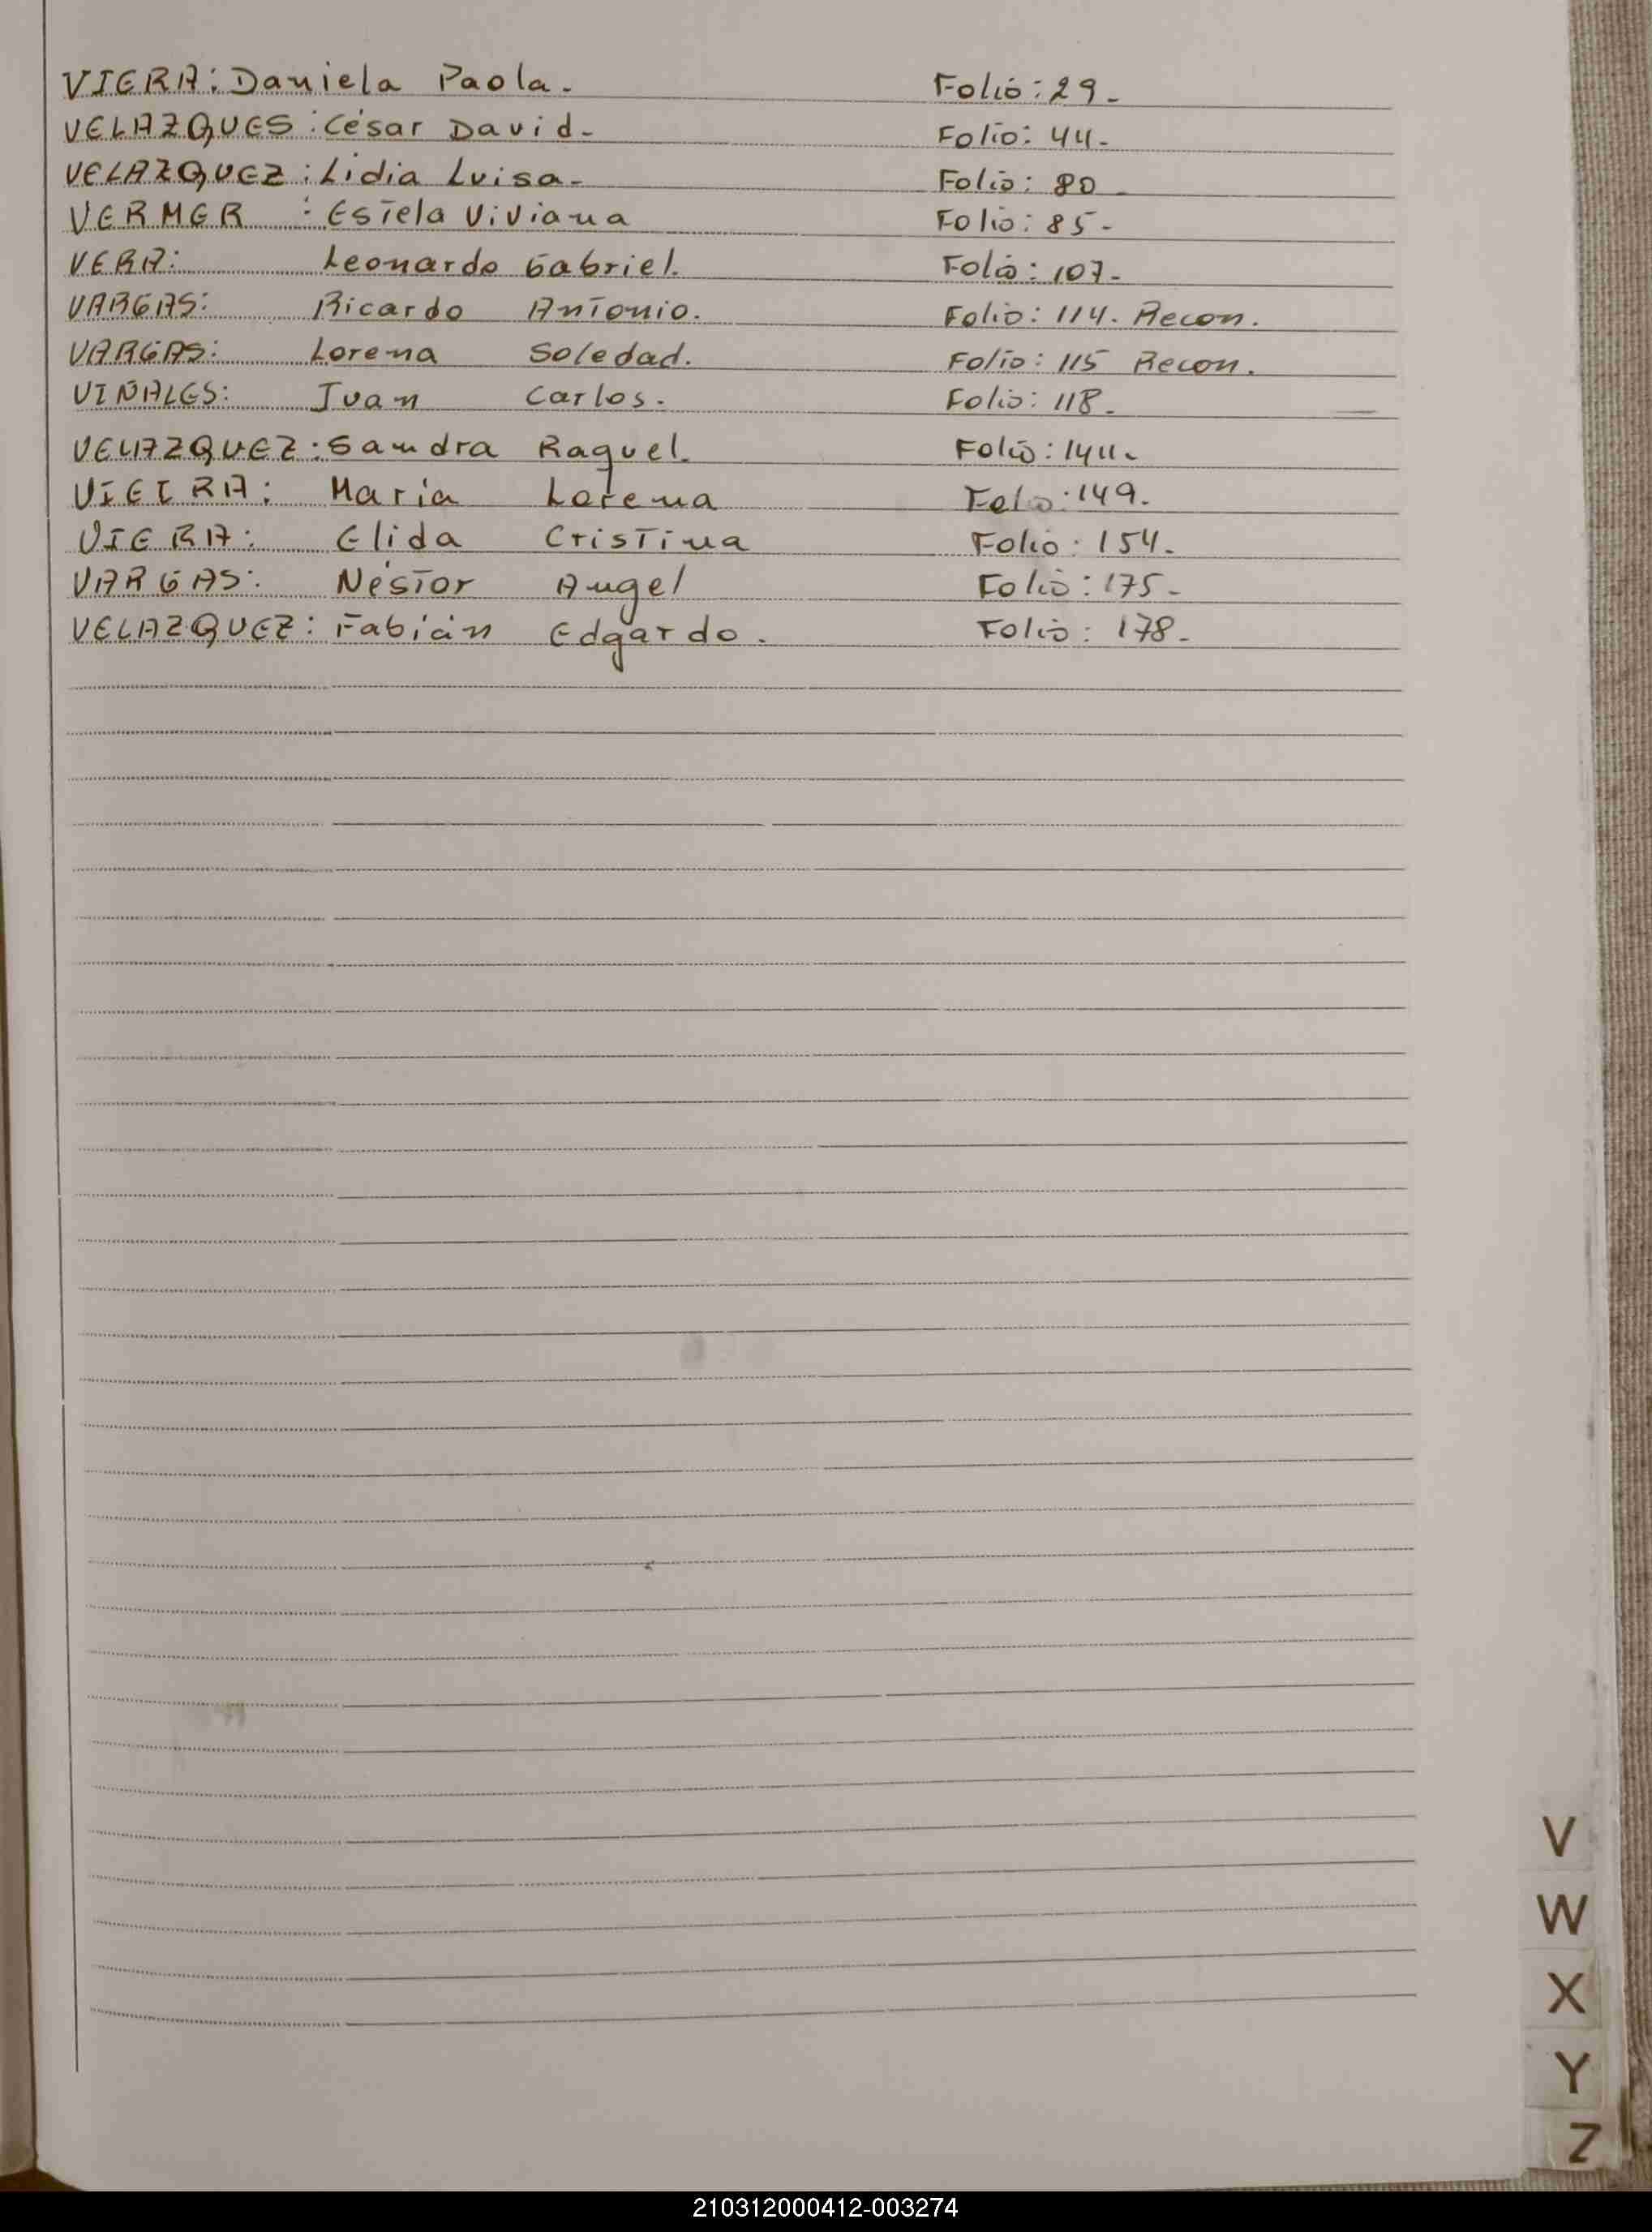 VIERA: Daniela Paola. Folio: 29-
VELAZQUES: César David- Folio: 44-
VELAZQUEZ: Lidia Luisa- Folio: 80-
VERMER: Estela Viviana Folio: 85-
VERA: Leonardo Gabriel. Folio: 107-
VARGAS: Ricardo Antonio. Folio: 114. Recon.
VARGAS: Lorena Soledad. Folio: 115 Recon.
VIÑALES: Juan Carlos. Folio: 118-
VELAZQUEZ: Sandra Raquel. Folio:
VIEIRA: Maria Lorena Folio: 149.
VIERA: Elida Cristina Folio: 154.
VARGAS: Néstor Angel Folio: 175-
VELAZQUEZ: Fabián Edgardo. Folio: 178-
V
W
X
Y
Z
210312000412-003274